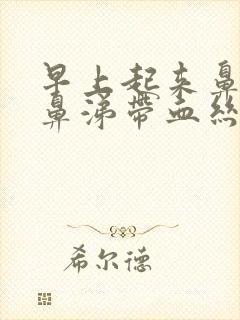 早上起来鼻
鼻涕带血丝
希尔德